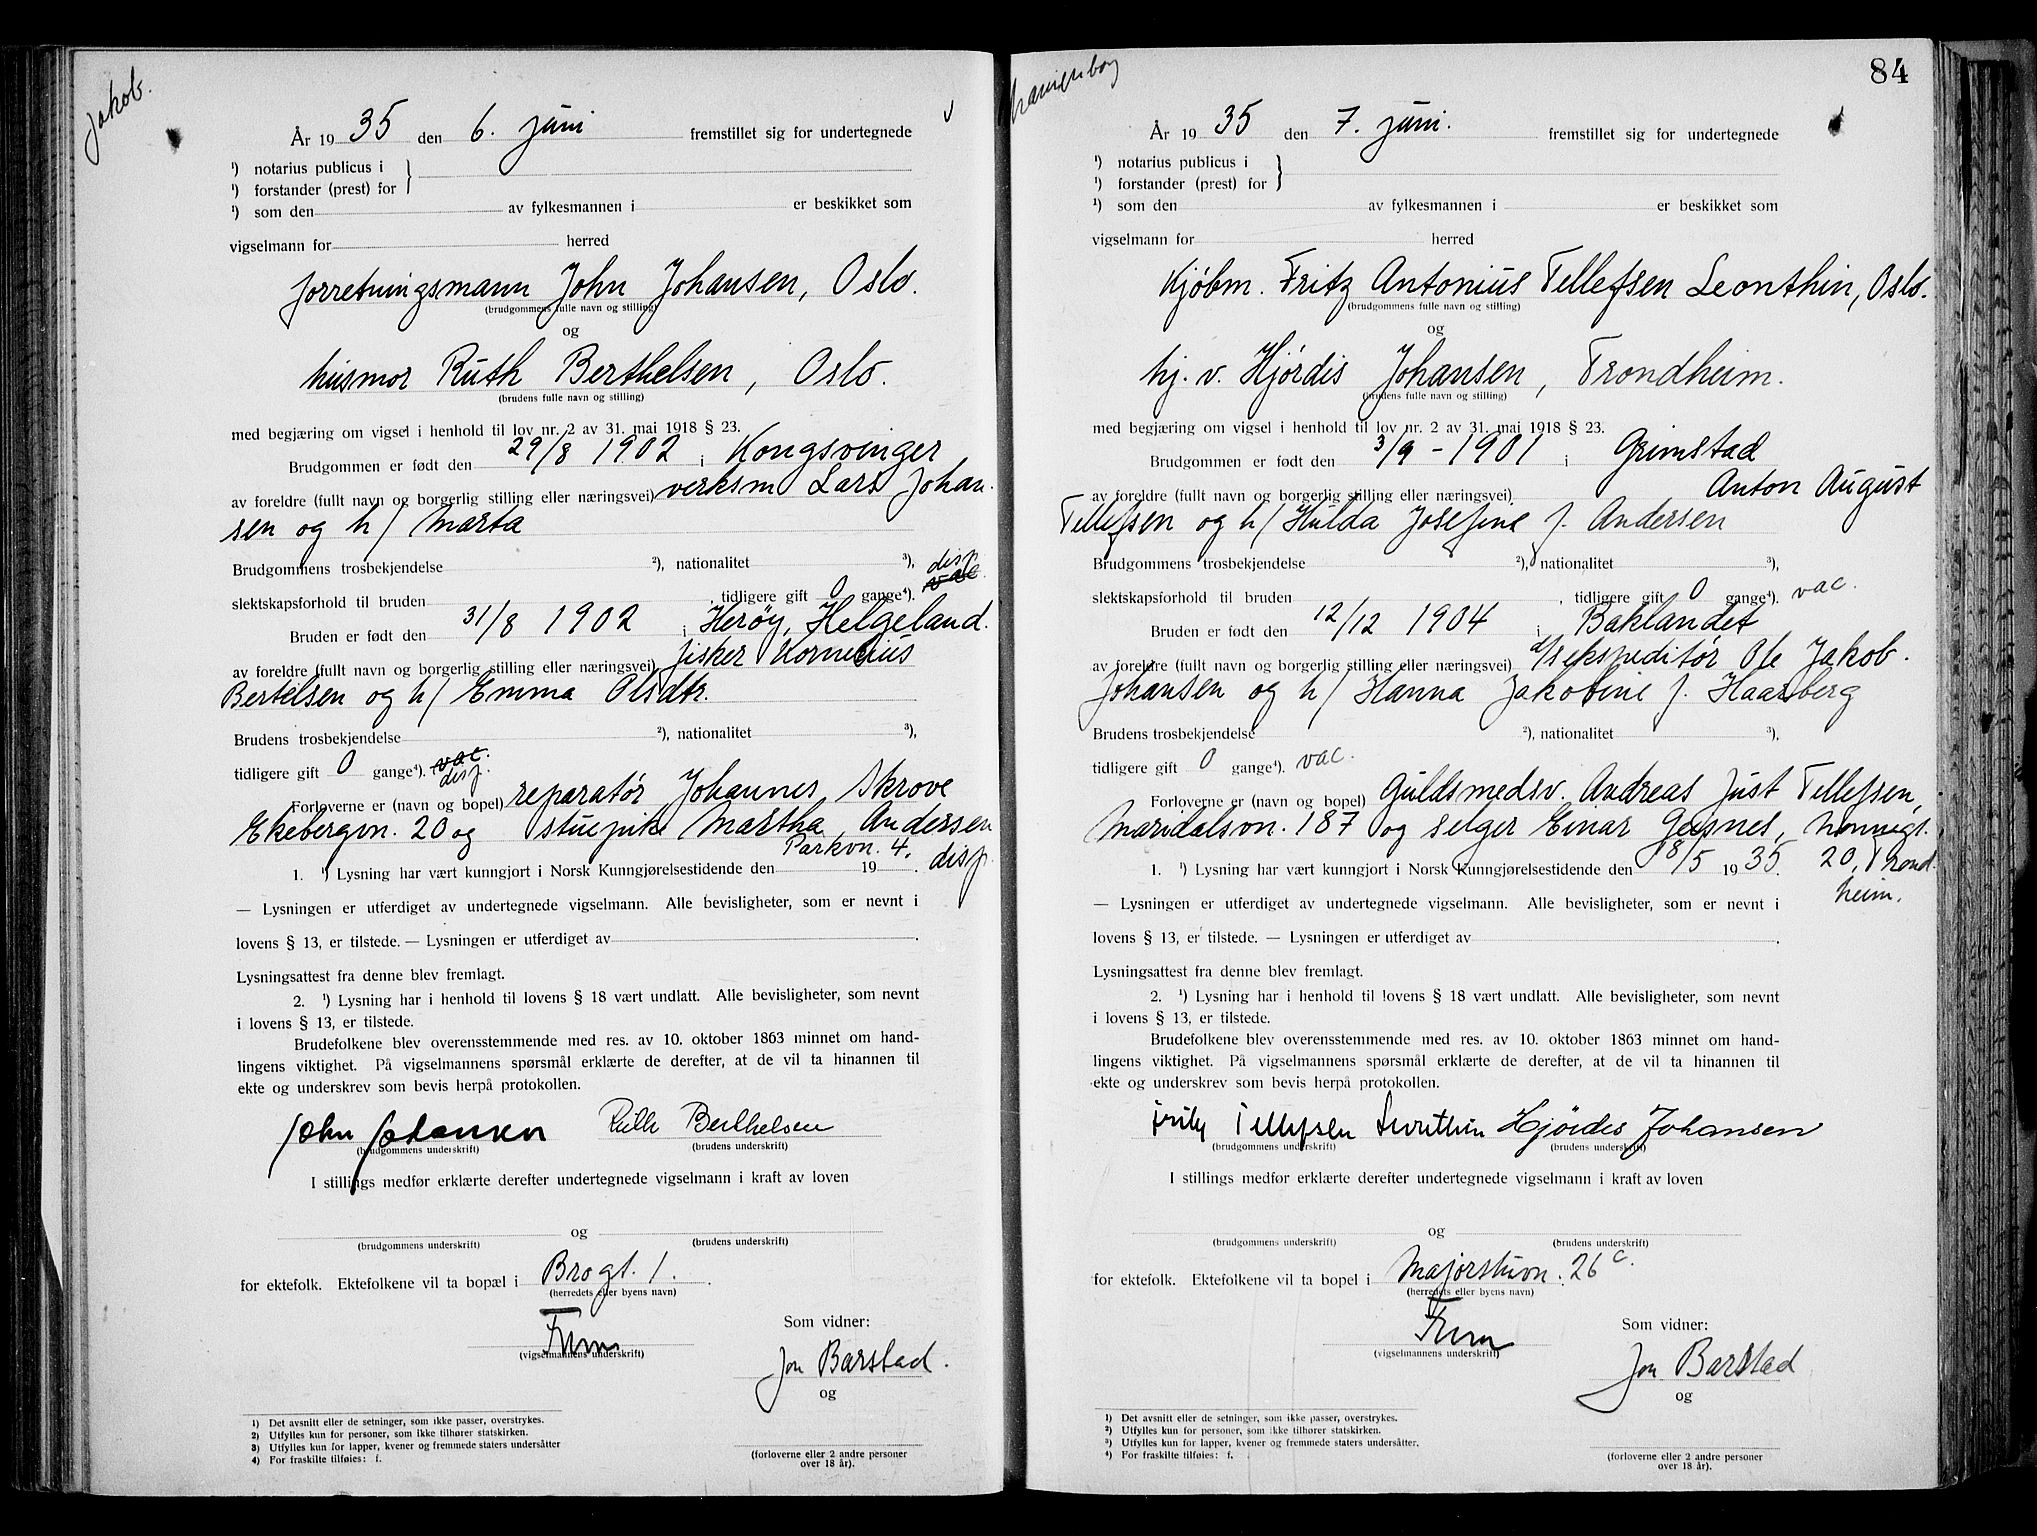 Jakob.
År 1935 den 6. juni fremstillet sig for undertegnede
¹) notarius publicus i
¹) forstander (prest) for
¹) som den av fylkesmannen i er beskikket som
vigselmann for herred
forretningsmann John Johansen, Oslo.
(brudgommens fulle navn og stilling)
og
husmor Ruth Berthelsen, Oslo.
(brudens fulle navn og stilling)
med begjæring om vigsel i henhold til lov nr. 2 av 31. mai 1918 § 23.
Brudgommen er født den 29/8 1902 i Kongsvinger
av foreldre (fullt navn og borgerlig stilling eller næringsvei) verksm Lars Johan
sen og h/ Marta
Brudgommens trosbekjendelse ²), nationalitet ³), disp.
slektskapsforhold til bruden , tidligere gift 0 gange⁴). vac.
Bruden er født den 31/8 1902 i Herøy, Helgeland.
av foreldre (fullt navn og borgerlig stilling eller næringsvei) fisker Kornelius
Bertelsen og h/ Emma Olsdtr.
Brudens trosbekjendelse ²), nationalitet ³),
tidligere gift 0 gange⁴). vac.
disp.
Forloverne er (navn og bopel) reparatør Johannes Skrove
Ekebergvn. 20 og stuepike Martha Andersen
Parkvn. 4.
1. ¹) Lysning har vært kunngjort i Norsk Kunngjørelsestidende den 19 . disp.
— Lysningen er utferdiget av undertegnede vigselmann. Alle bevisligheter, som er nevnt i
lovens § 13, er tilstede. — Lysningen er utferdiget av .
Lysningsattest fra denne blev fremlagt.
2. ¹) Lysning har i henhold til lovens § 18 vært undlatt. Alle bevisligheter, som nevnt
i lovens § 13, er tilstede.
Brudefolkene blev overensstemmende med res. av 10. oktober 1863 minnet om hand-
lingens viktighet. På vigselmannens spørsmål erklærte de derefter, at de vil ta hinannen til
ekte og underskrev som bevis herpå protokollen.
John Johansen Ruth Berthelsen
(brudgommens underskrift) (brudens underskrift)
I stillings medfør erklærte derefter undertegnede vigselmann i kraft av loven
og
(brudgommens underskrift) (brudens underskrift)
for ektefolk. Ektefolkene vil ta bopæl i Brogt. 1.
(herredets eller byens navn)
Som vidner:
(vigselmannens underskrift)
Jon Barstad.
og
1) Det avsnitt eller de setninger, som ikke passer, overstrykes.
2) Utfylles kun for personer, som ikke tilhører statskirken.
3) Utfylles kun for lapper, kvener og fremmede staters undersåtter
4) For fraskilte tilføies: f.
(forloverne eller 2 andre personer
over 18 år).
84
År 1935 den 7. juni. fremstillet sig for undertegnede
¹) notarius publicus i
¹) forstander (prest) for
¹) som den av fylkesmannen i er beskikket som
vigselmann for herred
Kjøbm. Fritz Antonius Tellefsen Leonthin, Oslo.
(brudgommens fulle navn og stilling)
og
hj. v. Hjørdis Johansen, Trondheim.
(brudens fulle navn og stilling)
med begjæring om vigsel i henhold til lov nr. 2 av 31. mai 1918 § 23.
Brudgommen er født den 3/9 - 1901 i Grimstad
av foreldre (fullt navn og borgerlig stilling eller næringsvei) Anton August
Tellefsen og h/ Hulda Josefine f. Andersen
Brudgommens trosbekjendelse ²), nationalitet ³),
slektskapsforhold til bruden , tidligere gift 0 gange⁴). vac.
Bruden er født den 12/12 1904 i Baklandet
av foreldre (fullt navn og borgerlig stilling eller næringsvei) ekspeditør Ole Jakob
Johansen og h/ Hanna Jakobine f. Haarberg
Brudens trosbekjendelse ²), nationalitet ³),
tidligere gift 0 gange⁴). vac.
Forloverne er (navn og bopel) Guldsmedsv. Andreas Just Tellefsen,
Maridalsvn. 187 og selger Einar
1. ¹) Lysning har vært kunngjort i Norsk Kunngjørelsestidende den 8/5 1935. 20, Trond
heim.
— Lysningen er utferdiget av undertegnede vigselmann. Alle bevisligheter, som er nevnt i
lovens § 13, er tilstede. — Lysningen er utferdiget av .
Lysningsattest fra denne blev fremlagt.
2. ¹) Lysning har i henhold til lovens § 18 vært undlatt. Alle bevisligheter, som nevnt
i lovens § 13, er tilstede.
Brudefolkene blev overensstemmende med res. av 10. oktober 1863 minnet om hand-
lingens viktighet. På vigselmannens spørsmål erklærte de derefter, at de vil ta hinannen til
ekte og underskrev som bevis herpå protokollen.
Tellefsen Leonthin Hjørdis Johansen
(brudgommens underskrift) (brudens underskrift)
I stillings medfør erklærte derefter undertegnede vigselmann i kraft av loven
og
(brudgommens underskrift) (brudens underskrift)
for ektefolk. Ektefolkene vil ta bopel i Majorstuvn. 26 c.
(herredets eller byens navn)
Som vidner:
(vigselmannens underskrift)
Jon Barstad
og
¹) Det avsnitt eller de setninger, som ikke passer, overstrykes.
²) Utfylles kun for personer, som ikke tilhører statskirken.
³) Utfylles kun for lapper, kvener og fremmede staters undersåtter.
⁴) For fraskilte tilføies: f.
(forloverne eller 2 andre personer
over 18 år).